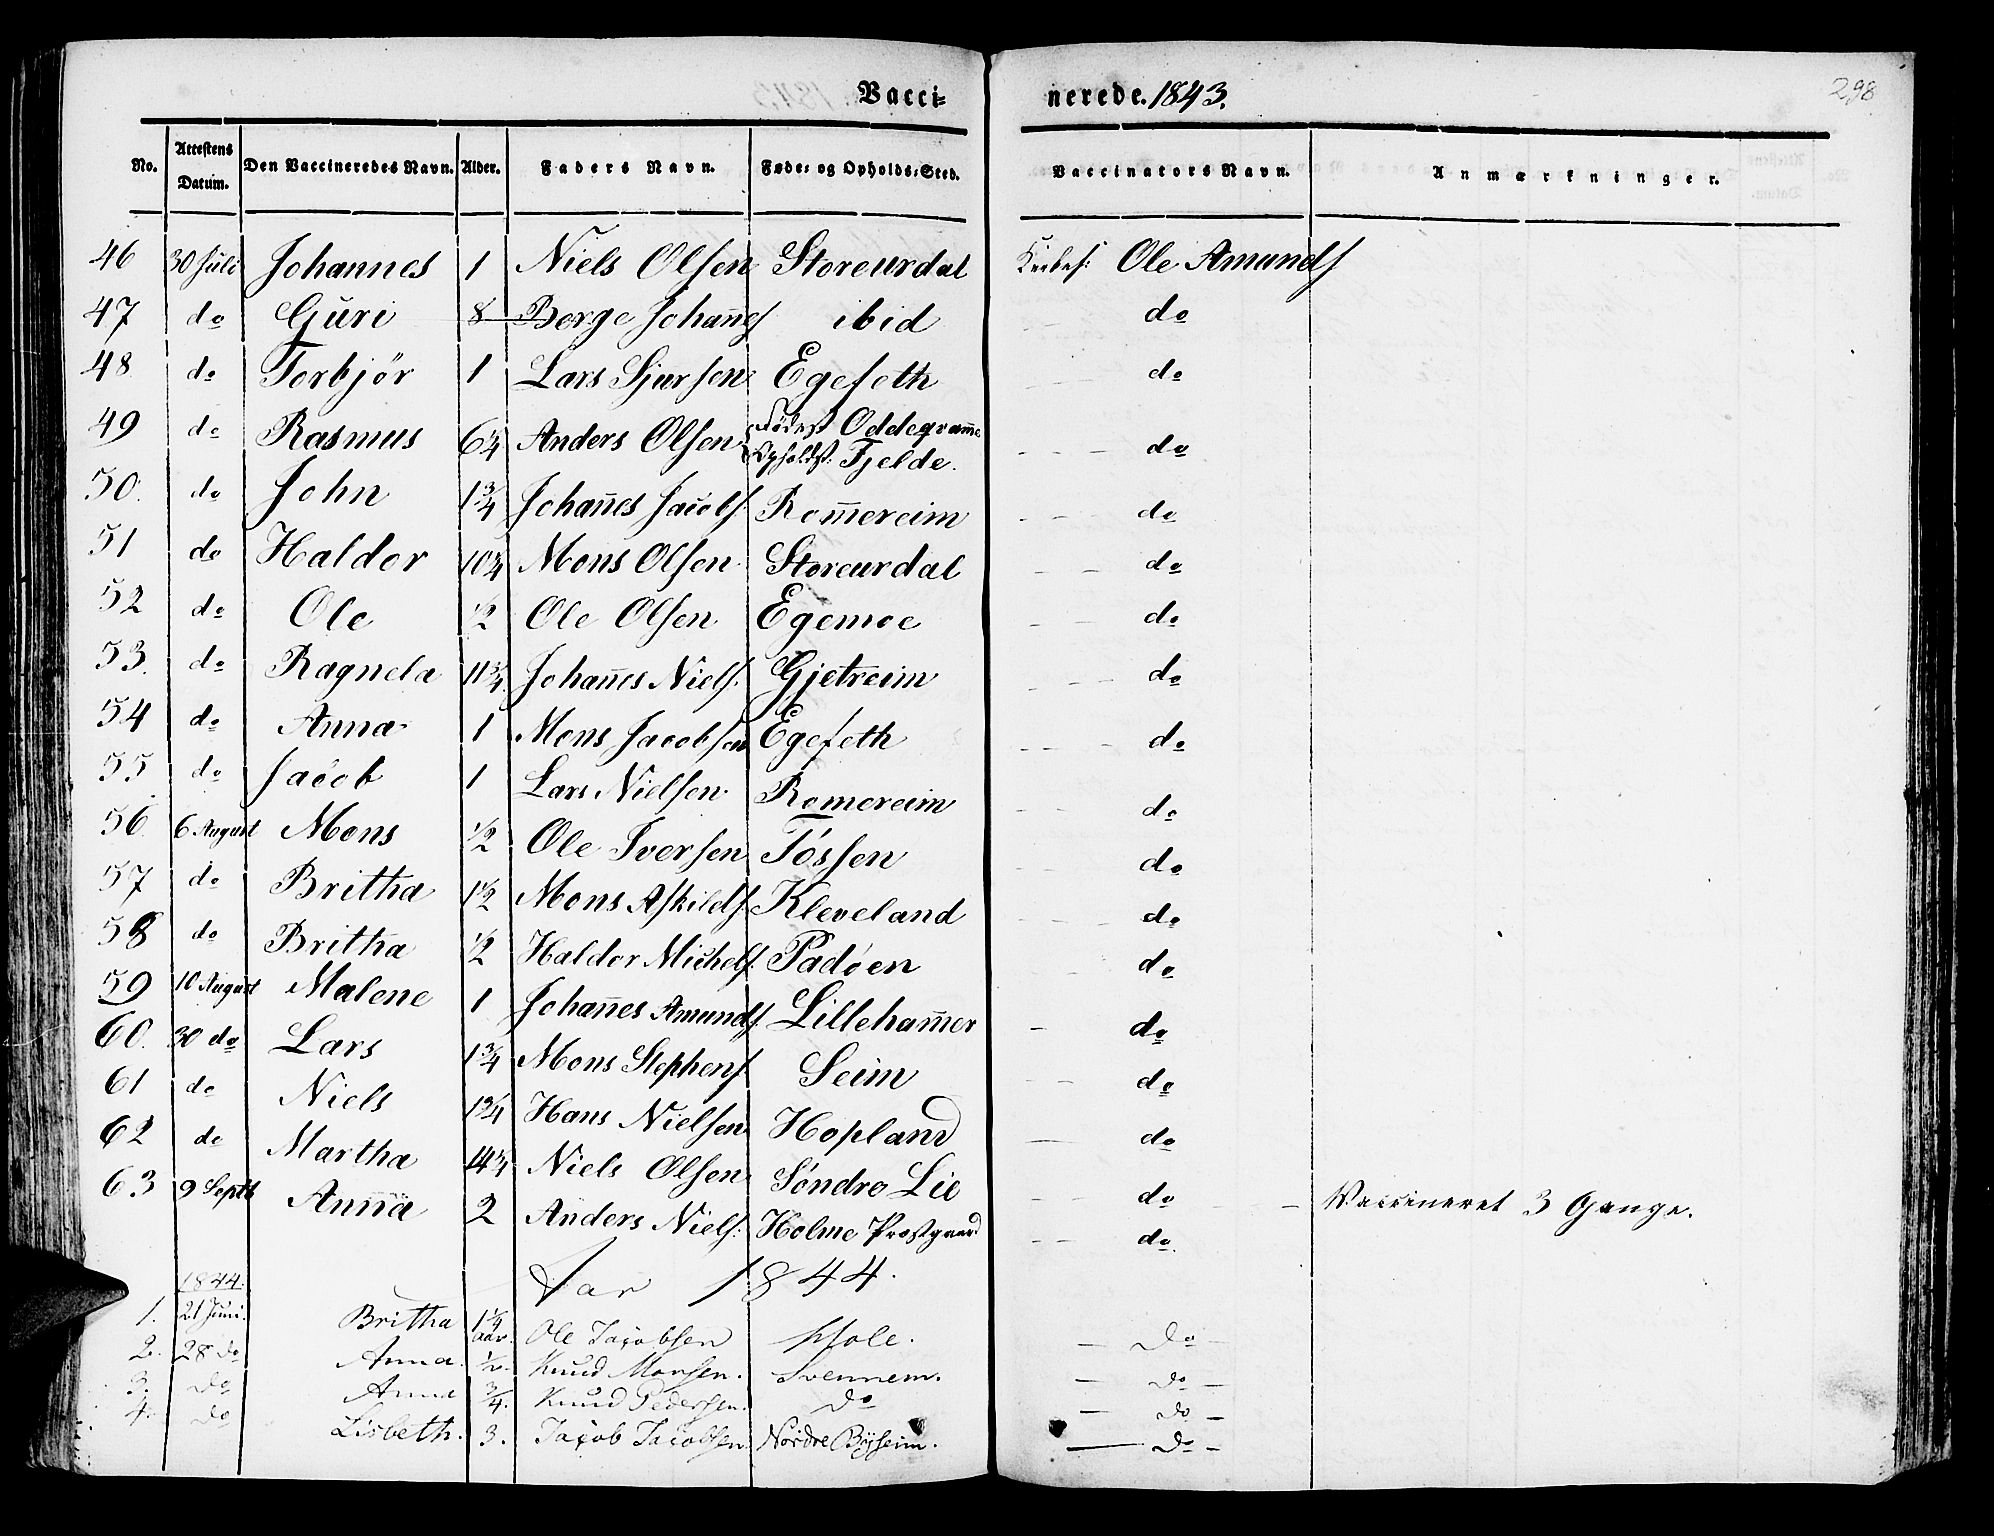 Vacci= nerede. 1843. 298
No. Attestens Datum. Den Vaccineredes Navn. Alder. Faders Navn. Føde= og Opholds=Sted. Vaccinators Navn. Anmærkninger.
46 30 Juli Johannes 1 Niels Olsen Storeurdal Ole Amunds
47 do Guri 8 Børge Johan̅es ibid do
48 do Torbjør 1 Lars Sjursen Egeseth do
49 do Rasmus 6 1/4 Anders Olsen Fødest Oddegram̅e Opholdst: Fjelde. do
50. do John 1 3/4 Johan̅es Jacobs. Rom̅ereim do
51 do Haldor 10 3/4 Mons Olsen Storeurdal do
52 do Ole 1/2 Ole Olsen Egemoe do
53. do Ragnela 11 3/4. Johan̅es Niels. Gjetreim do
54 do Anna 1 Mons Jacobsen Egeseth do
55 do Jacob 1 Lars Nielsen Romereim do
56. 6 August Mons 1/2 Ole Iversen Tóssen do
57 do Britha 1 1/2 Mons Askilds. Kleveland do
58 do Britha 1/2 Haldor Michels. Padóen do
59 10 August Malene 1 Johan̅es Amunds. Lilleham̅er do
60. 30 do Lars 1 3/4 Mons Stephens. Seim do
61 do Niels 1 3/4 Hans Nielsen Hopland do
62 do Martha 14 3/4 Niels Olsen Søndre Lie do Vaccineret 3 Gange.
63 9 Septb Anna 2 Anders Niels. Holme Præstgaard do.
Aar 1844.
1844.
1. 21 Juni. Britha 1 1/4 Aar. Ole Jacobsen Hole. Do
2. 28 Do Anna. 1/2. Knud Monsen. Svennem. Do
3. Do Anna 3/4. Knud Pedersen. Do Do
4. Do Lisbeth. 3. Jacob Jacobsen. Nordre Bÿseim. Do